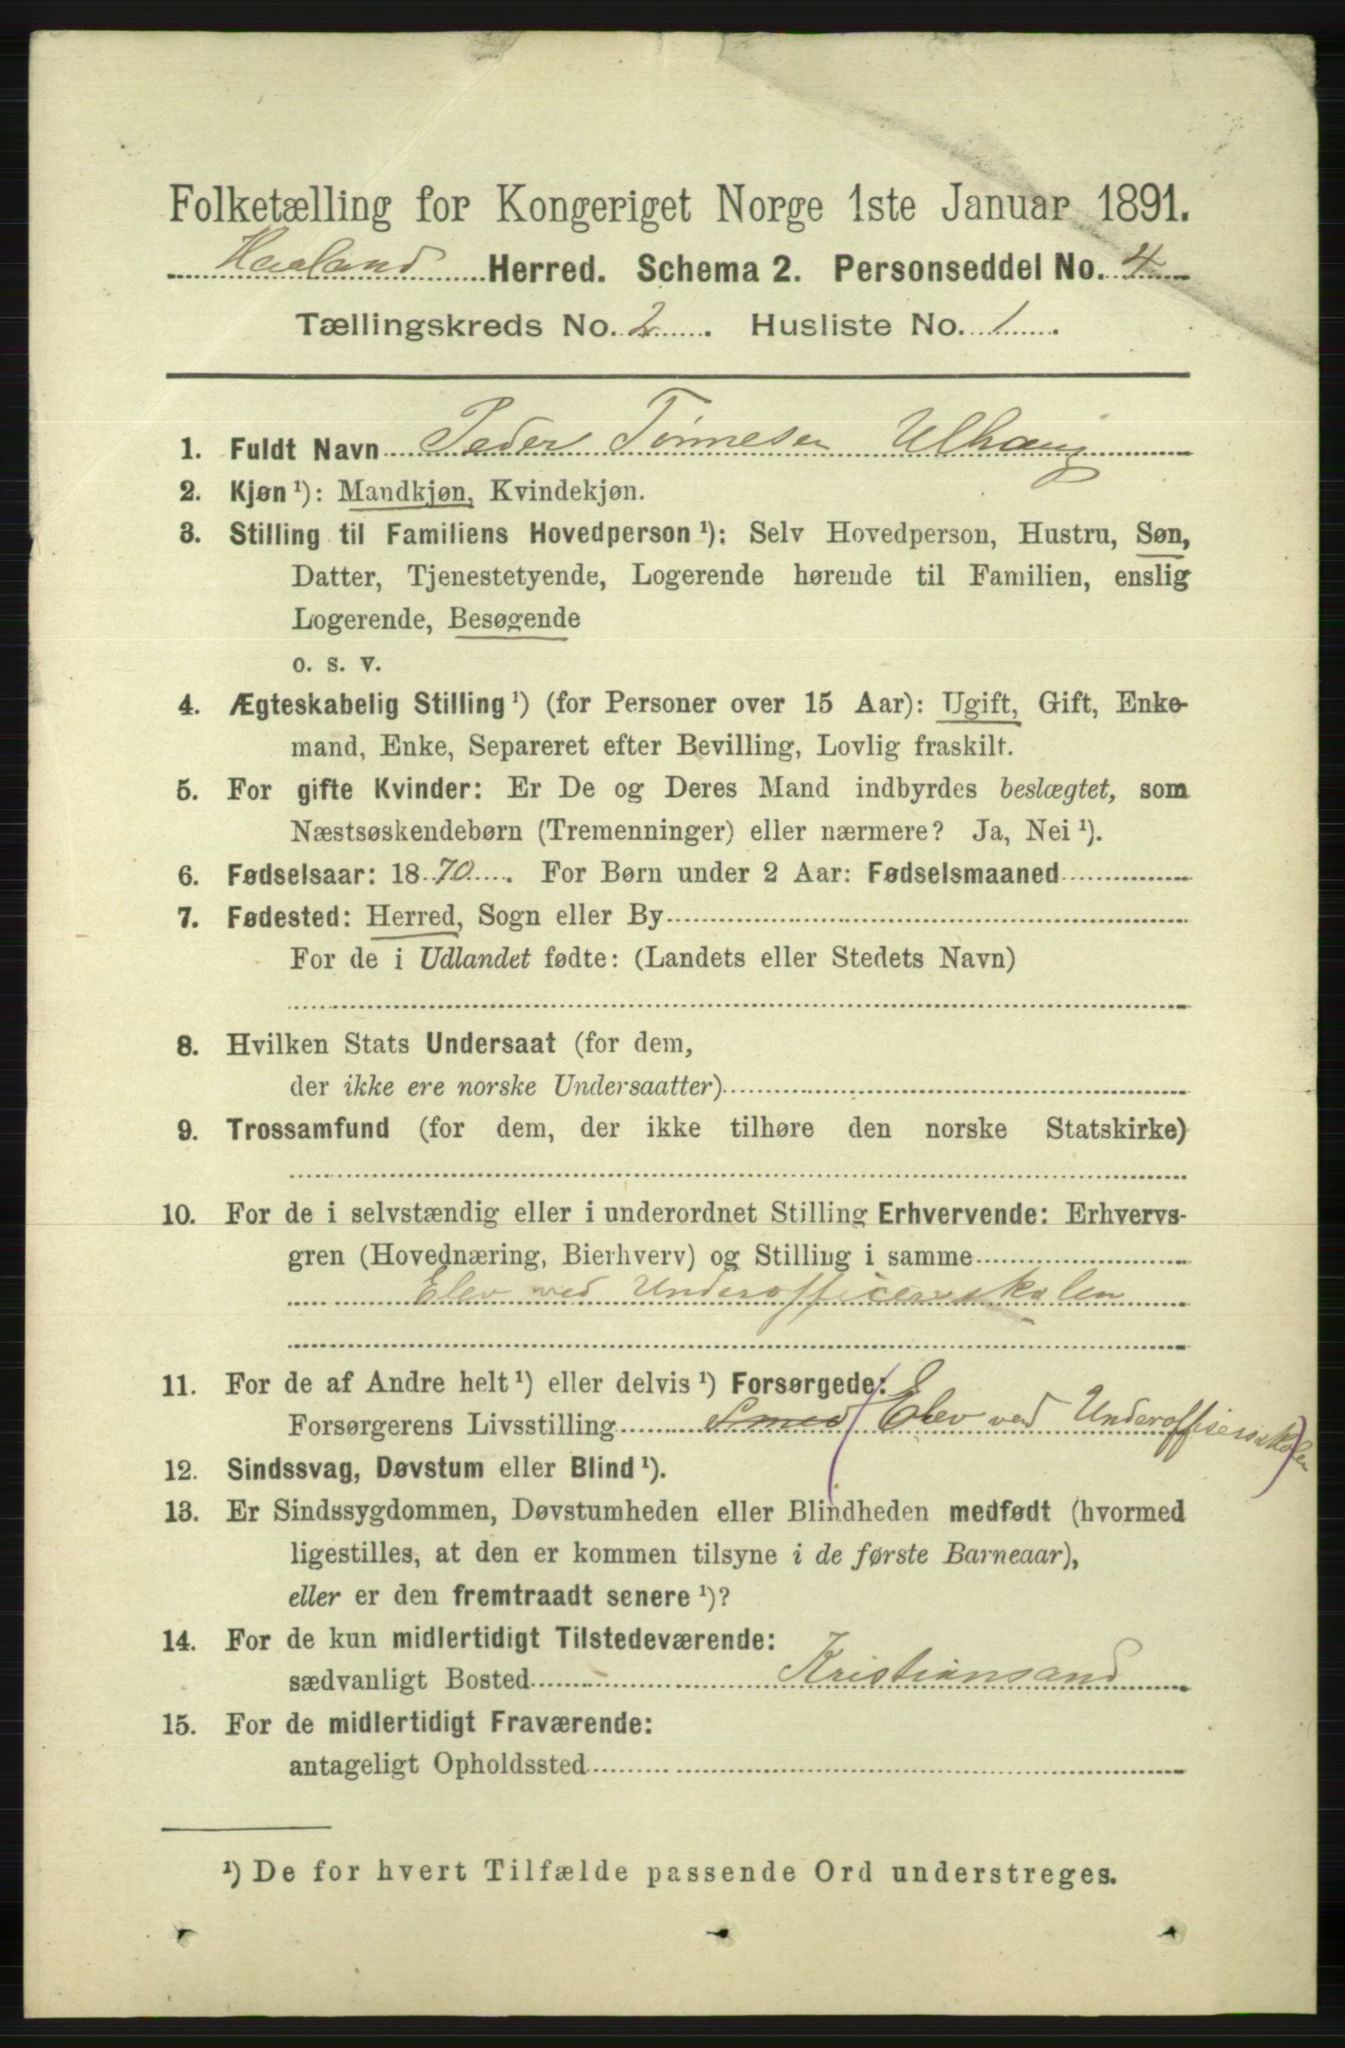 Folketælling for Kongeriget Norge 1ste Januar 1891.
Haaland Herred. Schema 2. Personseddel No. 4
Tællingskreds No. 2. Husliste No. 1.
1. Fuldt Navn Peder Tønnesen Ulhaug
2. Kjøn ¹): Mandkjøn, Kvindekjøn.
3. Stilling til Familiens Hovedperson ¹): Selv Hovedperson, Hustru, Søn,
Datter, Tjenestetyende, Logerende hørende til Familien, enslig
Logerende, Besøgende
o. s. v.
4. Ægteskabelig Stilling ¹) (for Personer over 15 Aar): Ugift, Gift, Enke-
mand, Enke, Separeret efter Bevilling, Lovlig fraskilt.
5. For gifte Kvinder: Er De og Deres Mand indbyrdes beslægtet, som
Næstsøskendebørn (Tremenninger) eller nærmere? Ja, Nei ¹).
6. Fødselsaar: 1870. For Børn under 2 Aar: Fødselsmaaned
7. Fødested: Herred, Sogn eller By
For de i Udlandet fødte: (Landets eller Stedets Navn)
8. Hvilken Stats Undersaat (for dem,
der ikke ere norske Undersaatter)
9. Trossamfund (for dem, der ikke tilhøre den norske Statskirke)
10. For de i selvstændig eller i underordnet Stilling Erhvervende: Erhvervs-
gren (Hovednæring, Bierhverv) og Stilling i samme
Elev ved Underofficersskolen
11. For de af Andre helt ¹) eller delvis ¹) Forsørgede:
Forsørgerens Livsstilling Smed (Elev ved Underoffisersskolen)
12. Sindssvag, Døvstum eller Blind ¹).
13. Er Sindssygdommen, Døvstumheden eller Blindheden medfødt (hvormed
ligestilles, at den er kommen tilsyne i de første Barneaar),
eller er den fremtraadt senere ¹)?
14. For de kun midlertidigt Tilstedeværende:
sædvanligt Bosted Kristiansand
15. For de midlertidigt Fraværende:
antageligt Opholdssted
¹) De for hvert Tilfælde passende Ord understreges.